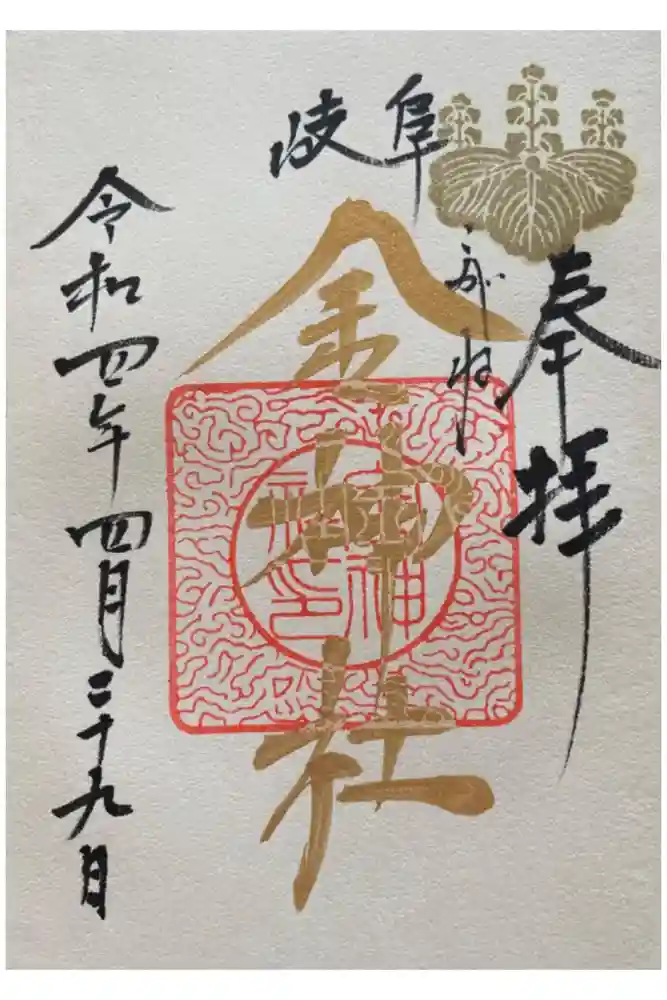 奉拝
岐阜
金神社
金神
社印
令和四年四月二十九日